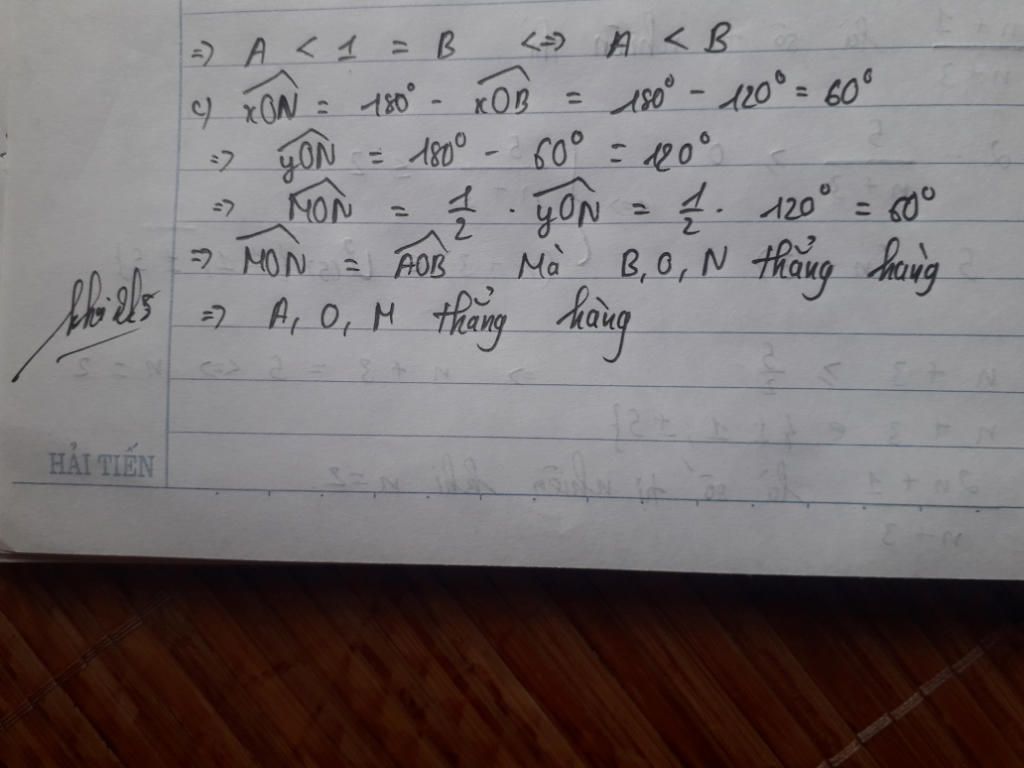 => A < 1 = B <=> A < B
c) xON = 180° - xOB = 180° - 120° = 60°
=> yON = 180° - 60° = 120°
=> MON = 1/2 . yON = 1/2 . 120° = 60°
=> MON = AOB Mà B, O, N thẳng hàng
=> A, O, M thẳng hàng
HẢI TIẾN